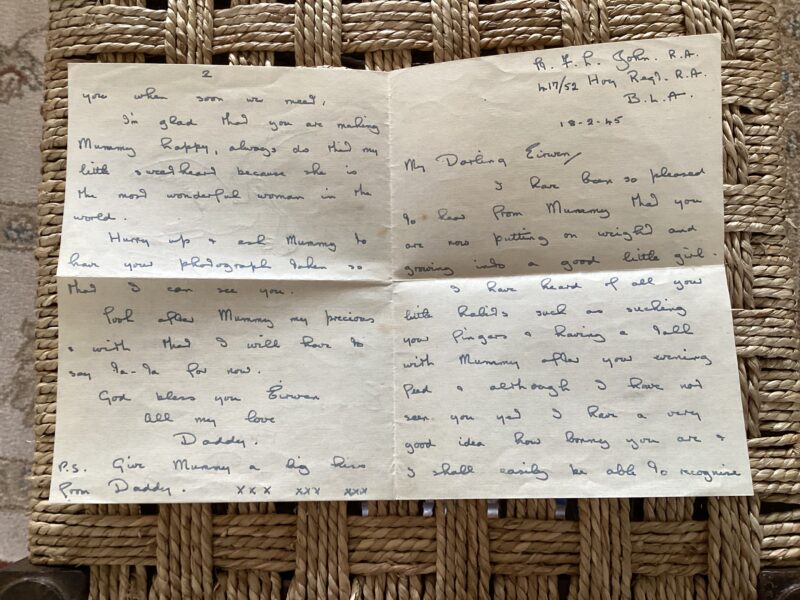 R. E. L. John. R.A.
417/52 Hvy Regt. R.A.
B.L.A.
18-2-45
My Darling Eirwen,
I have been so pleased
to hear from Mummy that you
are now putting on weight and
growing into a good little girl.
I have heard of all your
little habits such as sucking
your fingers & having a talk
with Mummy after your evening
feed & although I have not
seen you yet I have a very
good idea how bonny you are &
I shall easily be able to recognise
2
you when soon we meet.
I'm glad that you are making
Mummy happy, always do that my
little sweetheart because she is
the most wonderful woman in the
world.
Hurry up & ask Mummy to
have your photograph taken so
that I can see you.
Look after Mummy my precious
& with that I will have to
say Ta-Ta for now.
God bless you Eirwen
All my love
Daddy.
P.S. Give Mummy a big kiss
from Daddy. xxx xxx xxx